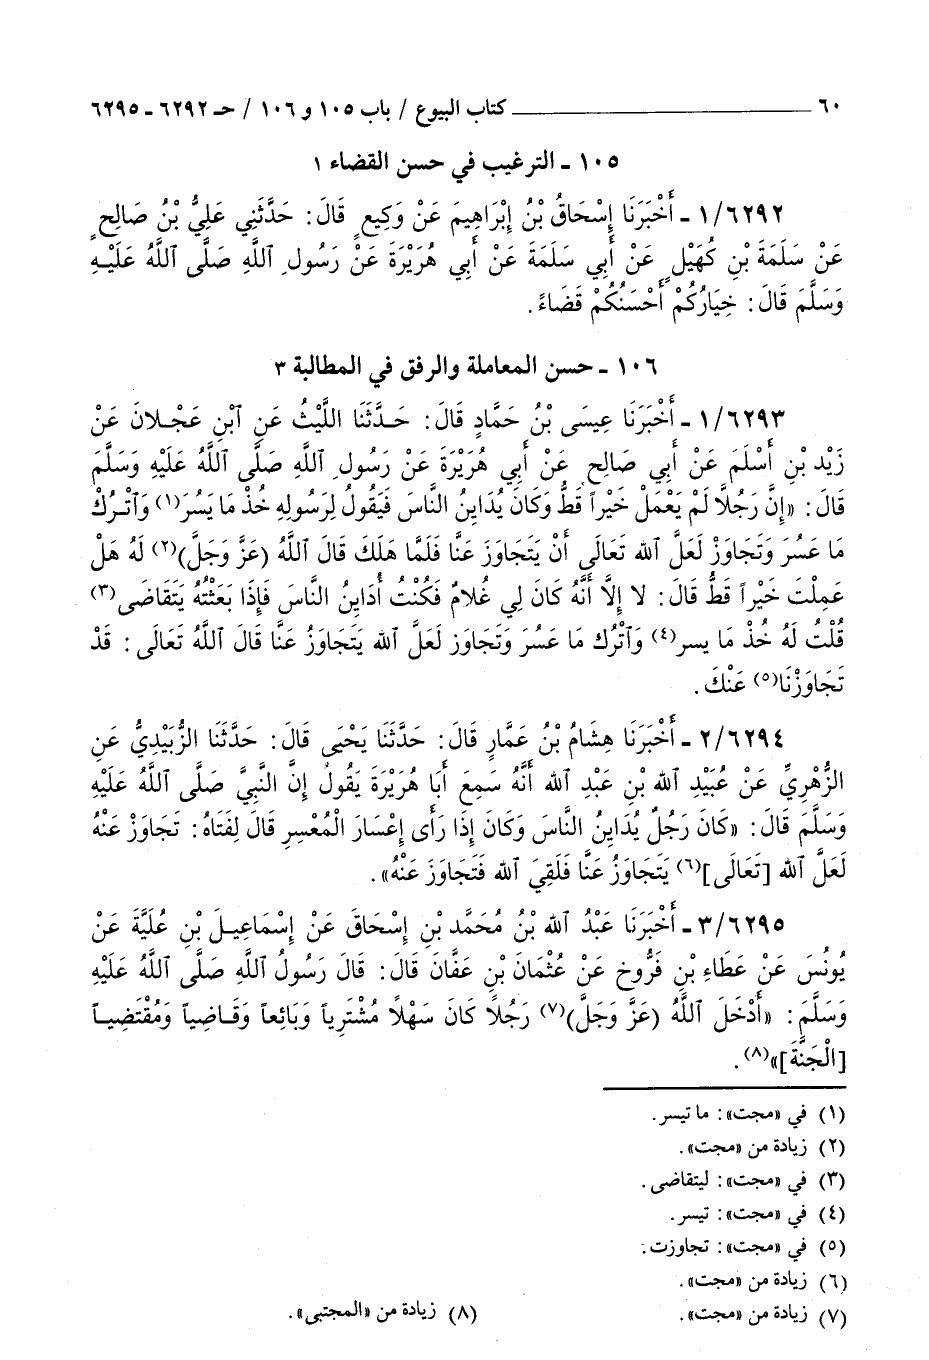 ٦٠ ـــــــــــــــــــــــــ كتاب البيوع / باب ١٠٥ و ١٠٦ / حـ ٦٢٩٢ ـ ٦٢٩٥
١٠٥ ـ الترغيب في حسن القضاء ١
١/٦٢٩٢ ـ أَخْبَرَنَا إِسْحَاقُ بْنُ إِبْرَاهِيمَ عَنْ وَكِيعٍ قَالَ: حَدَّثَنِي عَلِيُّ بْنُ صَالِحٍ
عَنْ سَلَمَةَ بْنِ كُهَيْلٍ عَنْ أَبِي سَلَمَةَ عَنْ أَبِي هُرَيْرَةَ عَنْ رَسُولِ ٱللَّهِ صَلَّى ٱللَّهُ عَلَيْهِ
وَسَلَّمَ قَالَ: خِيَارُكُمْ أَحْسَنُكُمْ قَضَاءً.
١٠٦ ـ حسن المعاملة والرفق في المطالبة ٣
١/٦٢٩٣ ـ أَخْبَرَنَا عِيسَى بْنُ حَمَّادٍ قَالَ: حَدَّثَنَا اللَّيْثُ عَنِ ٱبْنِ عَجْلانَ عَنْ
زَيْدِ بْنِ أَسْلَمَ عَنْ أَبِي صَالِحٍ عَنْ أَبِي هُرَيْرَةَ عَنْ رَسُولِ ٱللَّهِ صَلَّى ٱللَّهُ عَلَيْهِ وَسَلَّمَ
قَالَ: «إِنَّ رَجُلًا لَمْ يَعْمَلْ خَيْراً قَطُّ وَكَانَ يُدَايِنُ النَّاسَ فَيَقُولُ لِرَسُولِهِ خُذْ مَا يَسُرَ(١) وَٱتْرُكْ
مَا عَسُرَ وَتَجَاوَزْ لَعَلَّ ٱلله تَعَالَى أَنْ يَتَجَاوَزَ عَنَّا فَلَمَّا هَلَكَ قَالَ ٱللَّهُ (عَزَّ وَجَلَّ)(٢) لَهُ هَلْ
عَمِلْتَ خَيْراً قَطُّ قَالَ: لا إِلَّا أَنَّهُ كَانَ لِي غُلامٌ فَكُنْتُ أُدَايِنُ النَّاسَ فَإِذَا بَعَثْتُهُ يَتَقَاضَى(٣)
قُلْتُ لَهُ خُذْ مَا يسر(٤) وَٱتْرُك مَا عَسُرَ وَتَجَاوَز لَعَلَّ ٱلله يَتَجَاوَزُ عَنَّا قَالَ ٱللَّهُ تَعَالَى: قَدْ
تَجَاوَزْنَا(٥) عَنْكَ.
٢/٦٢٩٤ ـ أَخْبَرَنَا هِشَامُ بْنُ عَمَّارٍ قَالَ: حَدَّثَنَا يَحْيَى قَالَ: حَدَّثَنَا الزُّبَيْدِيُّ عَنِ
الزُّهْرِيِّ عَنْ عُبَيْدِ ٱلله بْنِ عَبْدِ ٱلله أَنَّهُ سَمِعَ أَبَا هُرَيْرَةَ يَقُولُ إِنَّ النَّبِيَّ صَلَّى ٱللَّهُ عَلَيْهِ
وَسَلَّمَ قَالَ: «كَانَ رَجُلٌ يُدَايِنُ النَّاسَ وَكَانَ إِذَا رَأَى إِعْسَارَ الْمُعْسِرِ قَالَ لِفَتَاهُ: تَجَاوَزْ عَنْهُ
لَعَلَّ ٱلله [تَعَالَى](٦) يَتَجَاوَزُ عَنَّا فَلَقِيَ ٱلله فَتَجَاوَزَ عَنْهُ».
٣/٦٢٩٥ ـ أَخْبَرَنَا عَبْدُ ٱلله بْنُ مُحَمَّدِ بْنِ إِسْحَاقَ عَنْ إِسْمَاعِيلَ بْنِ عُلَيَّةَ عَنْ
يُونُسَ عَنْ عَطَاءِ بْنِ فَرُّوخٍ عَنْ عُثْمَانَ بْنِ عَفَّانَ قَالَ: قَالَ رَسُولُ ٱللَّهِ صَلَّى ٱللَّهُ عَلَيْهِ
وَسَلَّمَ: «أَدْخَلَ ٱللَّهُ (عَزَّ وَجَلَّ)(٧) رَجُلًا كَانَ سَهْلًا مُشْتَرِياً وَبَائِعاً وَقَاضِياً وَمُقْتَضِياً
[الْجَنَّةَ]»(٨).
(١) في «مجت»: ما تيسر.
(٢) زيادة من «مجت».
(٣) في «مجت»: ليتقاضى.
(٤) في «مجت»: تيسر.
(٥) في «مجت»: تجاوزت.
(٦) زيادة من «مجت».
(٧) زيادة من «مجت». (٨) زيادة من «المجتبى».